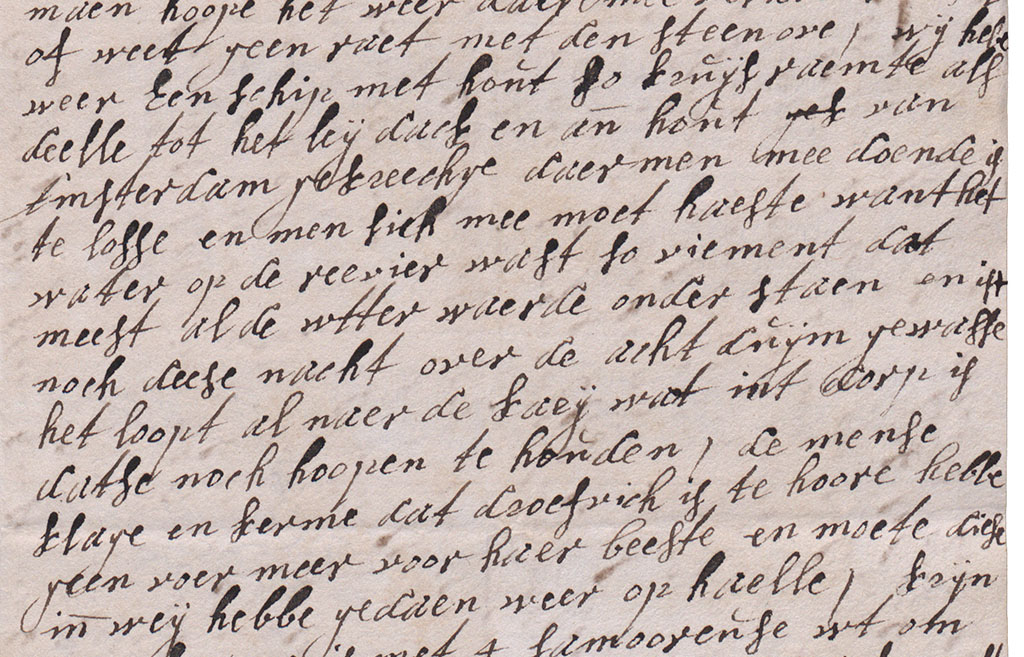 maen hoope het weer
of weet geen raet met den steenove, wij hebe
weer Een schip met hout so kruijs raemte als
deelle tot het leij dack en an hout van
Amsterdam gekreechge daer men mee doende is
te losse en men sich mee moet haeste want het
water op de reevier wast so viement dat
meest al de utter waerde onder staen en ist
noch deese nacht over de acht duijm gewasse
het loopt al naer de kaeij wat int dorp is
datse noch hoopen te houden, de mense
klage en kerme dat droefvich is te hoore hebbe
geen voer meer voor haer beeste en moete diese
in weij hebbe gedaen weer op haelle, krijn
met 4 samooreuse ut om